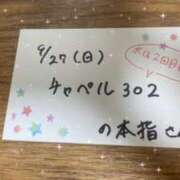 9/27(日)
本指2回目
チャペル302
の本指さ